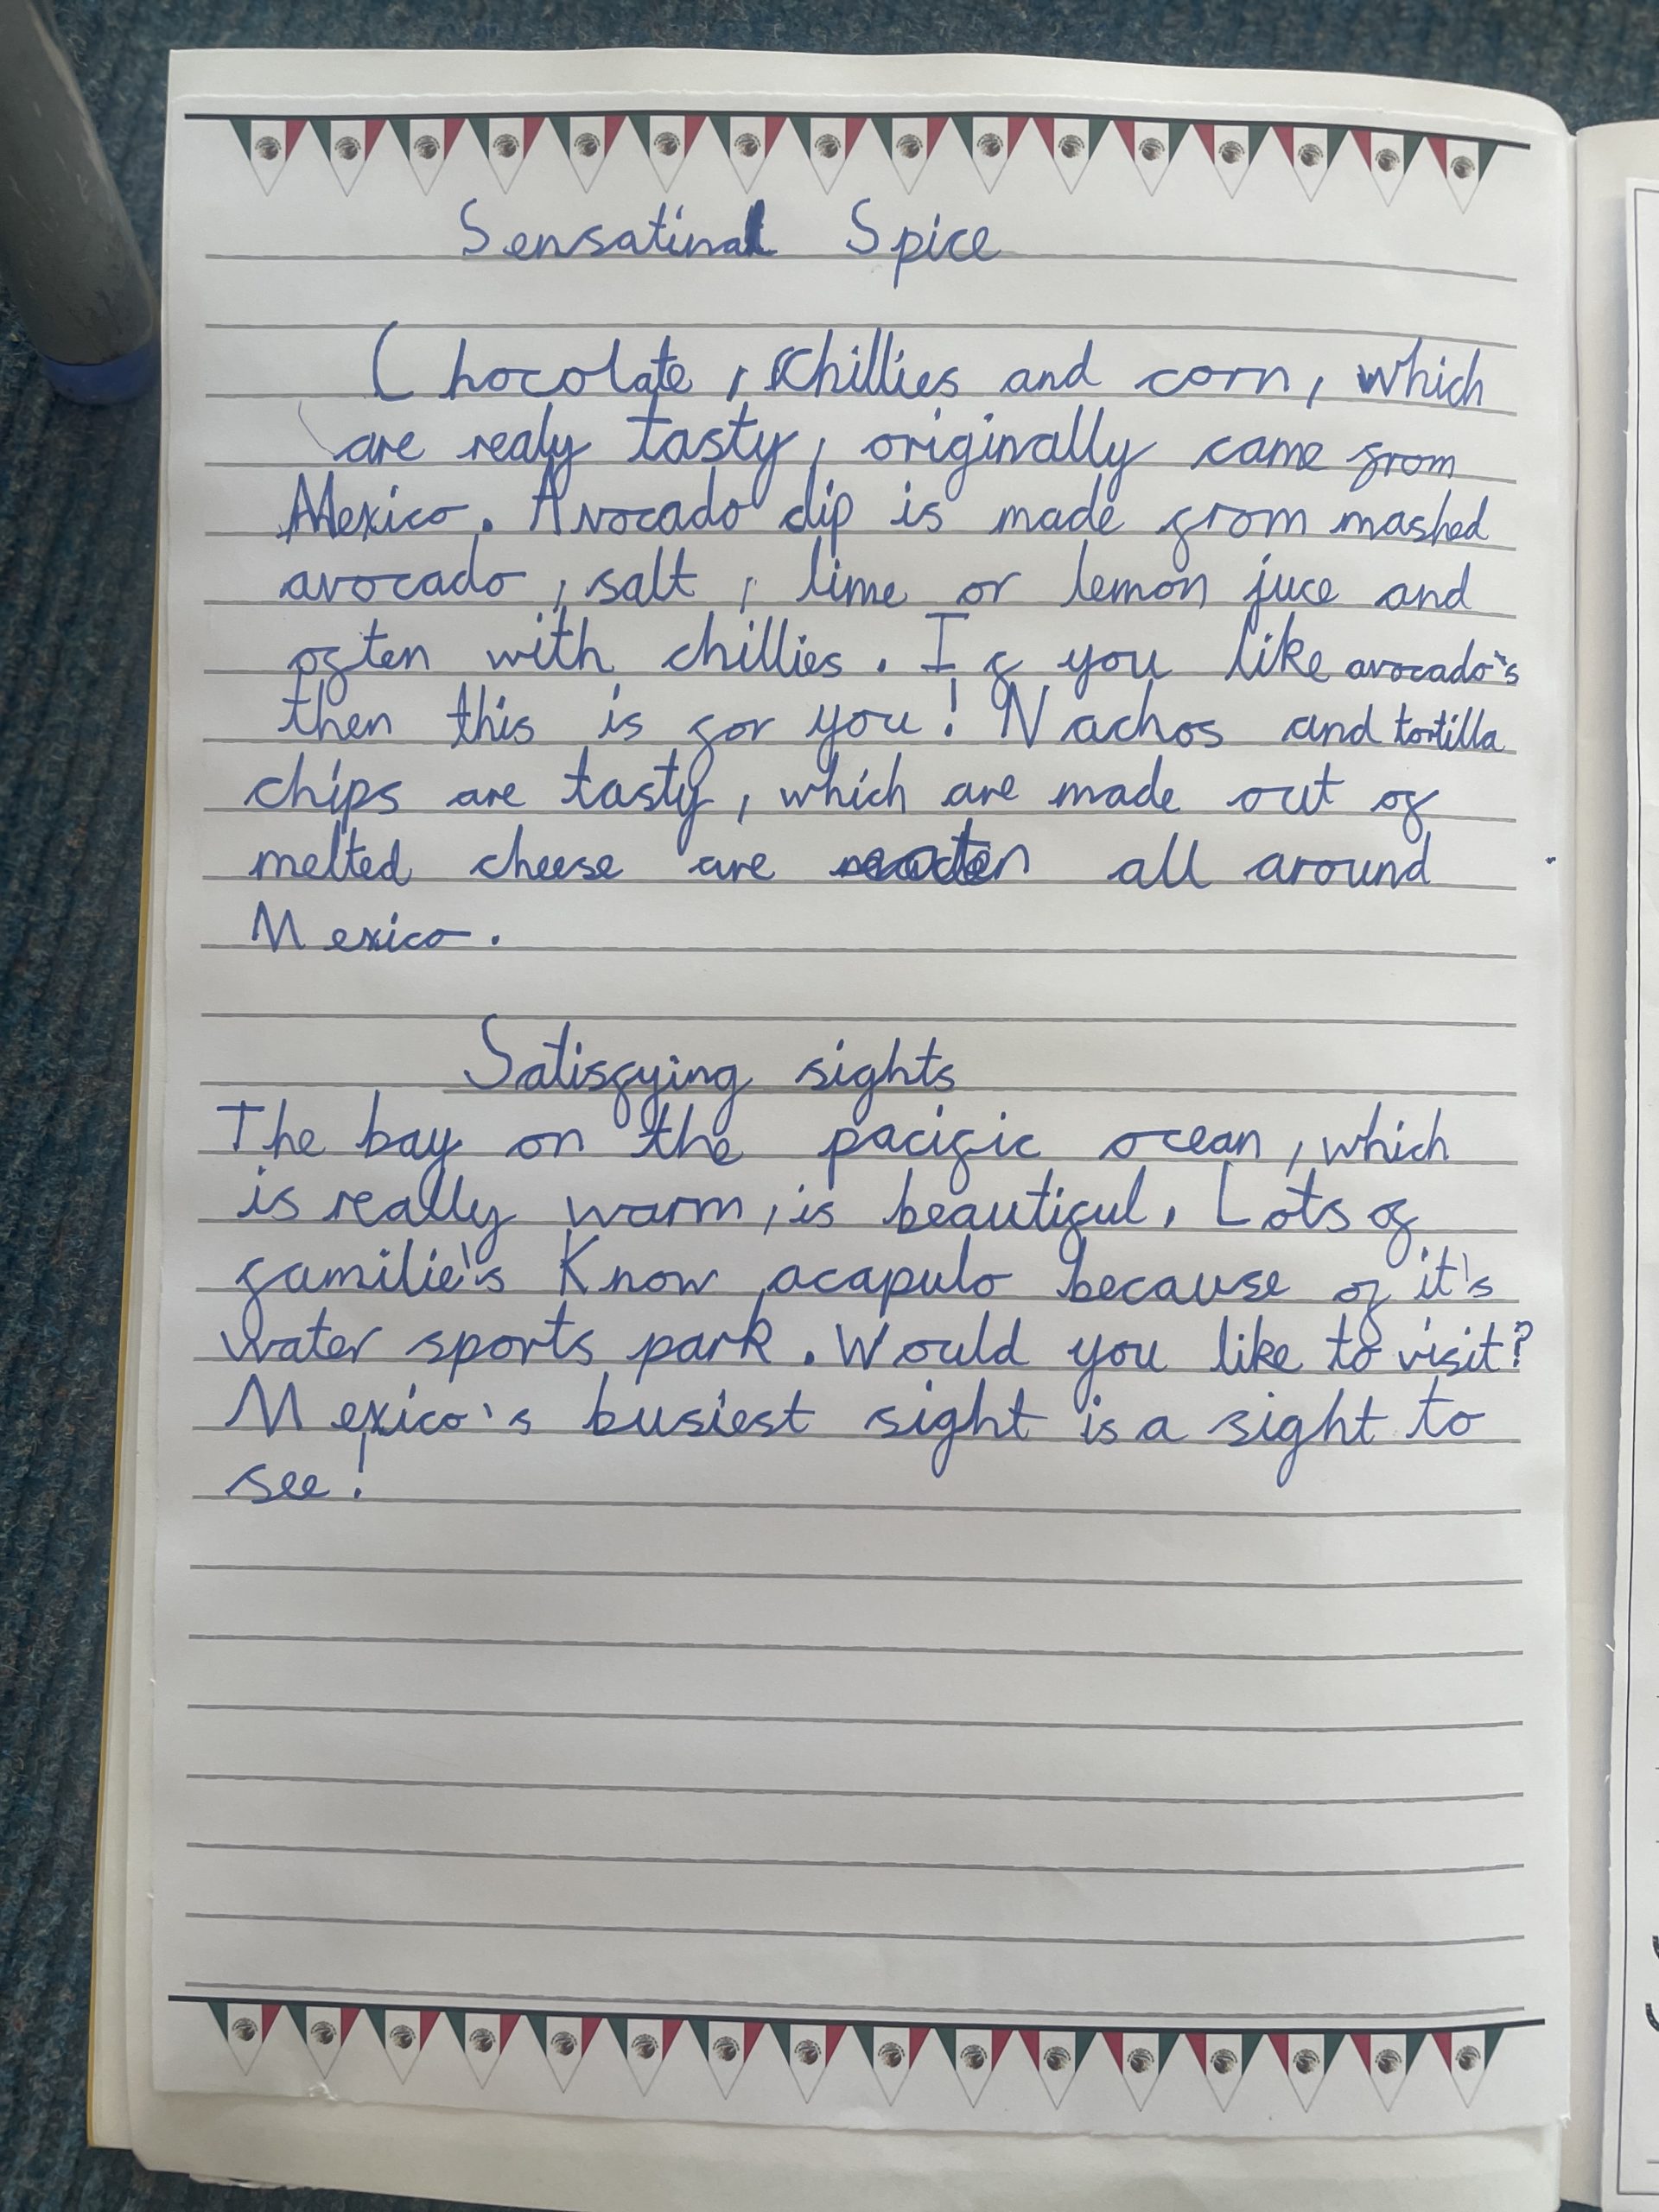 Sensatinal Spice
Chocolate, chillies and corn, which
are realy tasty, originally came from
Mexico. Avocado dip is made from mashed
avocado, salt, lime or lemon juce and
often with chillies. If you like avocado's
then this is for you! Nachos and tortilla
chips are tasty, which are made out of
melted cheese are eaten all around
Mexico.
Satisfying sights
The bay on the pacific ocean, which
is really warm, is beautiful. Lots of
familie's Know acapulo because of it's
water sports park. Would you like to visit?
Mexico's busiest sight is a sight to
see!